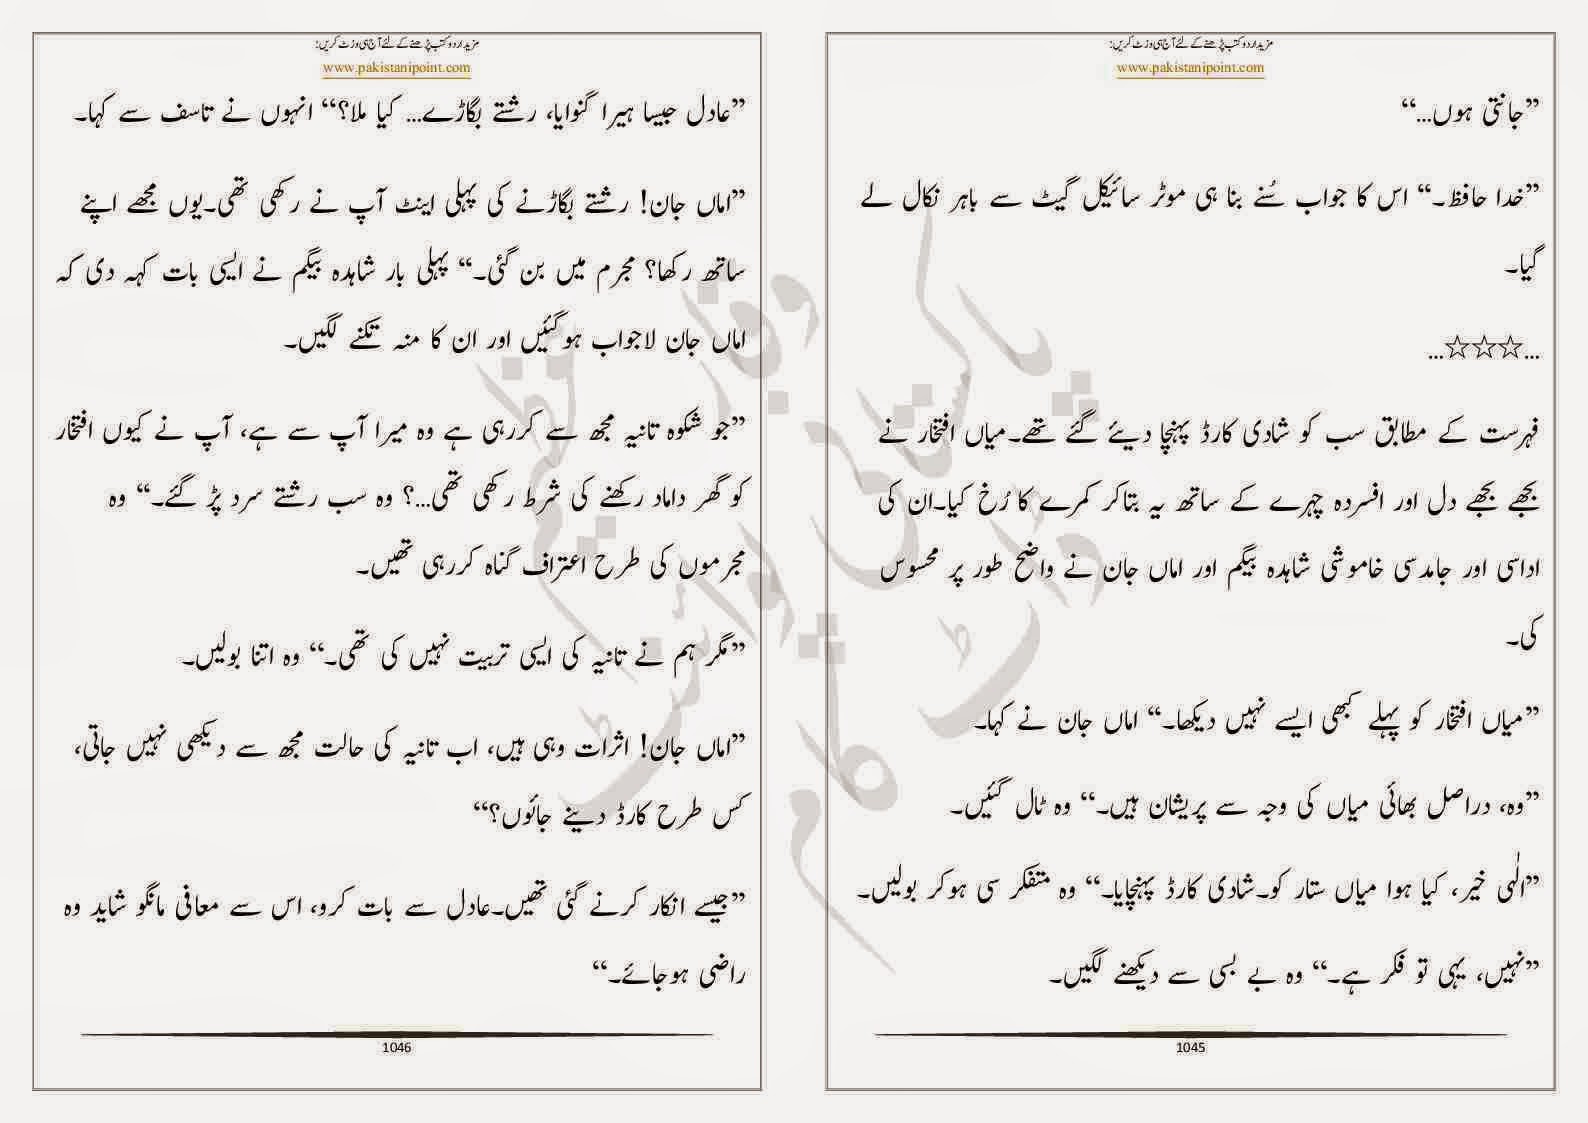 مزید اردو کتب پڑھنے کے لئے آج ہی وزٹ کریں:
www.pakistanipoint.com
”جانتی ہوں...“
”خدا حافظ۔“ اس کا جواب سُنے بنا ہی موٹر سائیکل گیٹ سے باہر نکال لے
گیا۔
...☆☆☆...
فہرست کے مطابق سب کو شادی کارڈ پہنچا دیئے گئے تھے۔میاں افتخار نے
بجھے بجھے دل اور افسردہ چہرے کے ساتھ یہ بتاکر کمرے کا رُخ کیا۔ان کی
اداسی اور جامدسی خاموشی شاہدہ بیگم اور اماں جان نے واضح طور پر محسوس
کی۔
”میاں افتخار کو پہلے کبھی ایسے نہیں دیکھا۔“ اماں جان نے کہا۔
”وہ، دراصل بھائی میاں کی وجہ سے پریشان ہیں۔“ وہ ٹال گئیں۔
”الٰہی خیر، کیا ہوا میاں ستار کو۔شادی کارڈ پہنچایا۔“ وہ متفکر سی ہوکر بولیں۔
”نہیں، یہی تو فکر ہے۔“ وہ بے بسی سے دیکھنے لگیں۔
1045
مزید اردو کتب پڑھنے کے لئے آج ہی وزٹ کریں:
www.pakistanipoint.com
”عادل جیسا ہیرا گنوایا، رشتے بگاڑے... کیا ملا؟“ انہوں نے تاسف سے کہا۔
”اماں جان! رشتے بگاڑنے کی پہلی اینٹ آپ نے رکھی تھی۔یوں مجھے اپنے
ساتھ رکھا؟ مجرم میں بن گئی۔“ پہلی بار شاہدہ بیگم نے ایسی بات کہہ دی کہ
اماں جان لاجواب ہوگئیں اور ان کا منہ تکنے لگیں۔
”جو شکوہ تانیہ مجھ سے کررہی ہے وہ میرا آپ سے ہے، آپ نے کیوں افتخار
کو گھر داماد رکھنے کی شرط رکھی تھی...؟ وہ سب رشتے سرد پڑ گئے۔“ وہ
مجرموں کی طرح اعتراف گناہ کررہی تھیں۔
”مگر ہم نے تانیہ کی ایسی تربیت نہیں کی تھی۔“ وہ اتنا بولیں۔
”اماں جان! اثرات وہی ہیں، اب تانیہ کی حالت مجھ سے دیکھی نہیں جاتی،
کس طرح کارڈ دینے جائوں؟“
”جیسے انکار کرنے گئی تھیں۔عادل سے بات کرو، اس سے معافی مانگو شاید وہ
راضی ہوجائے۔“
1046